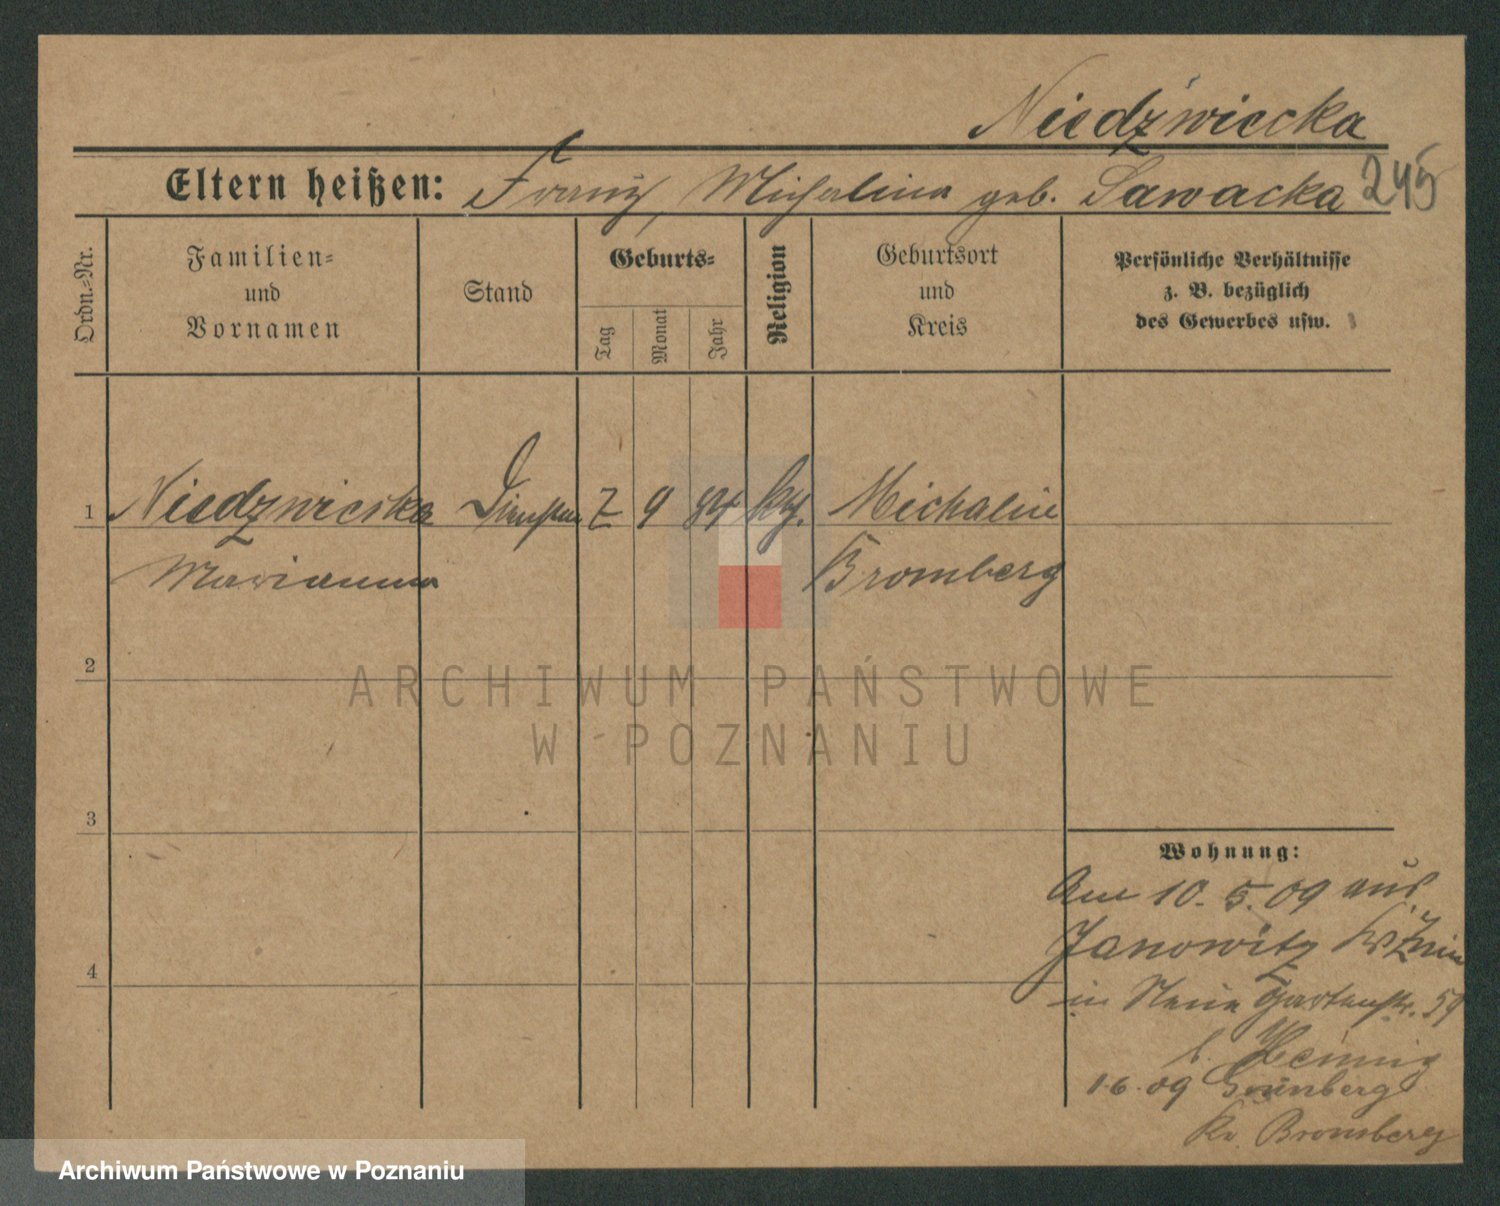 Niedźwiecka
Eltern heißen: Franz, Michalina geb. Sawacka 245
Ordn.-Nr.
Familien-
und
Vornamen
Stand
Geburts-
Tag
Monat
Jahr
Religion
Geburtsort
und
Kreis
Persönliche Verhältnisse
z. B. bezüglich
des Gewerbes usw.
1 Niedzwiecka 9 84 kth. Michalin
Marianna Bromberg
2
3
4
Wohnung:
Am 10. 5. 09 aus
Janowitz Kr Żnin
in Neue Gartenstr. 59
b. Hennig
1.6.09 Grünberg
Kr. Bromberg
ARCHIWUM PAŃSTWOWE
W POZNANIU
Archiwum Państwowe w Poznaniu